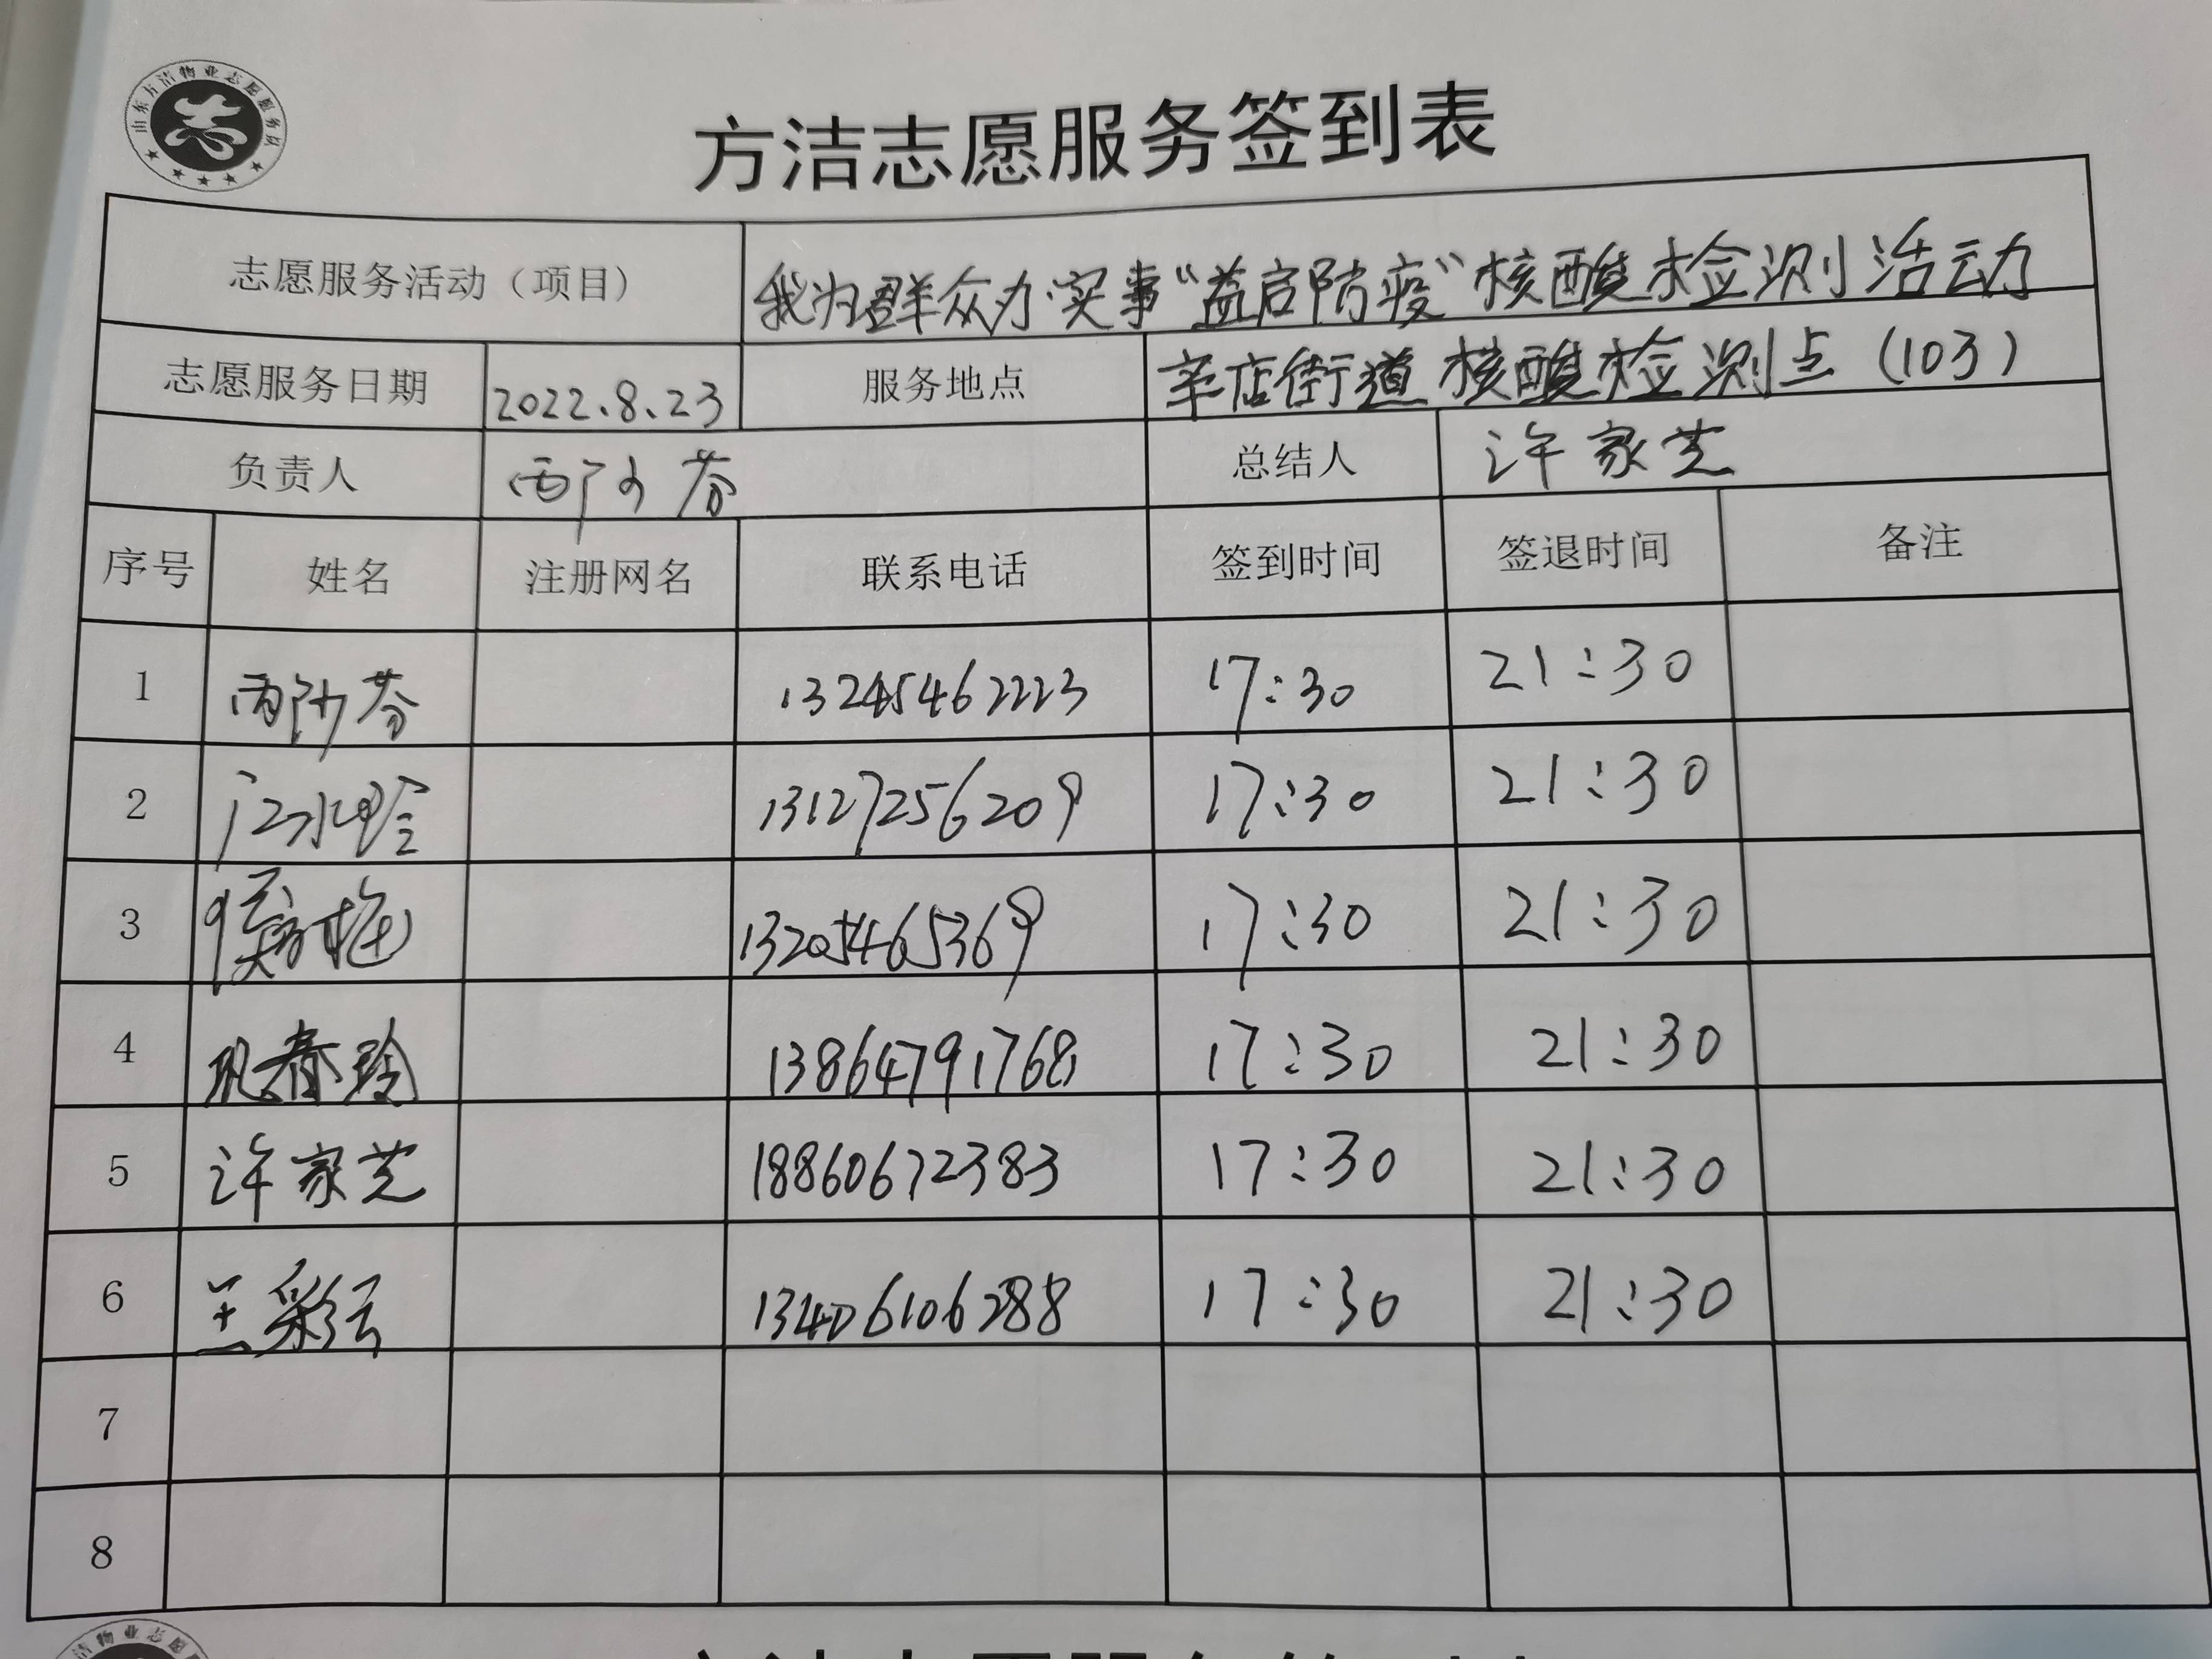 山东方洁物业志愿服务队
方洁志愿服务签到表
志愿服务活动（项目） 我为群众办实事“益启防疫”核酸检测活动
志愿服务日期 2022.8.23 服务地点 辛店街道核酸检测点（103）
负责人 总结人 许家芝
序号 姓名 注册网名 联系电话 签到时间 签退时间 备注
1 13245462223 17:30 21:30
2 13127256209 17:30 21:30
3 13205465369 17:30 21:30
4 巩春玲 13864791768 17:30 21:30
5 许家芝 18860672383 17:30 21:30
6 王彩云 13406106288 17:30 21:30
7
8
洁物业志愿